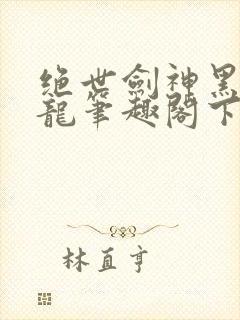 绝世劍神黑
龍筆趣閣下
林直亨